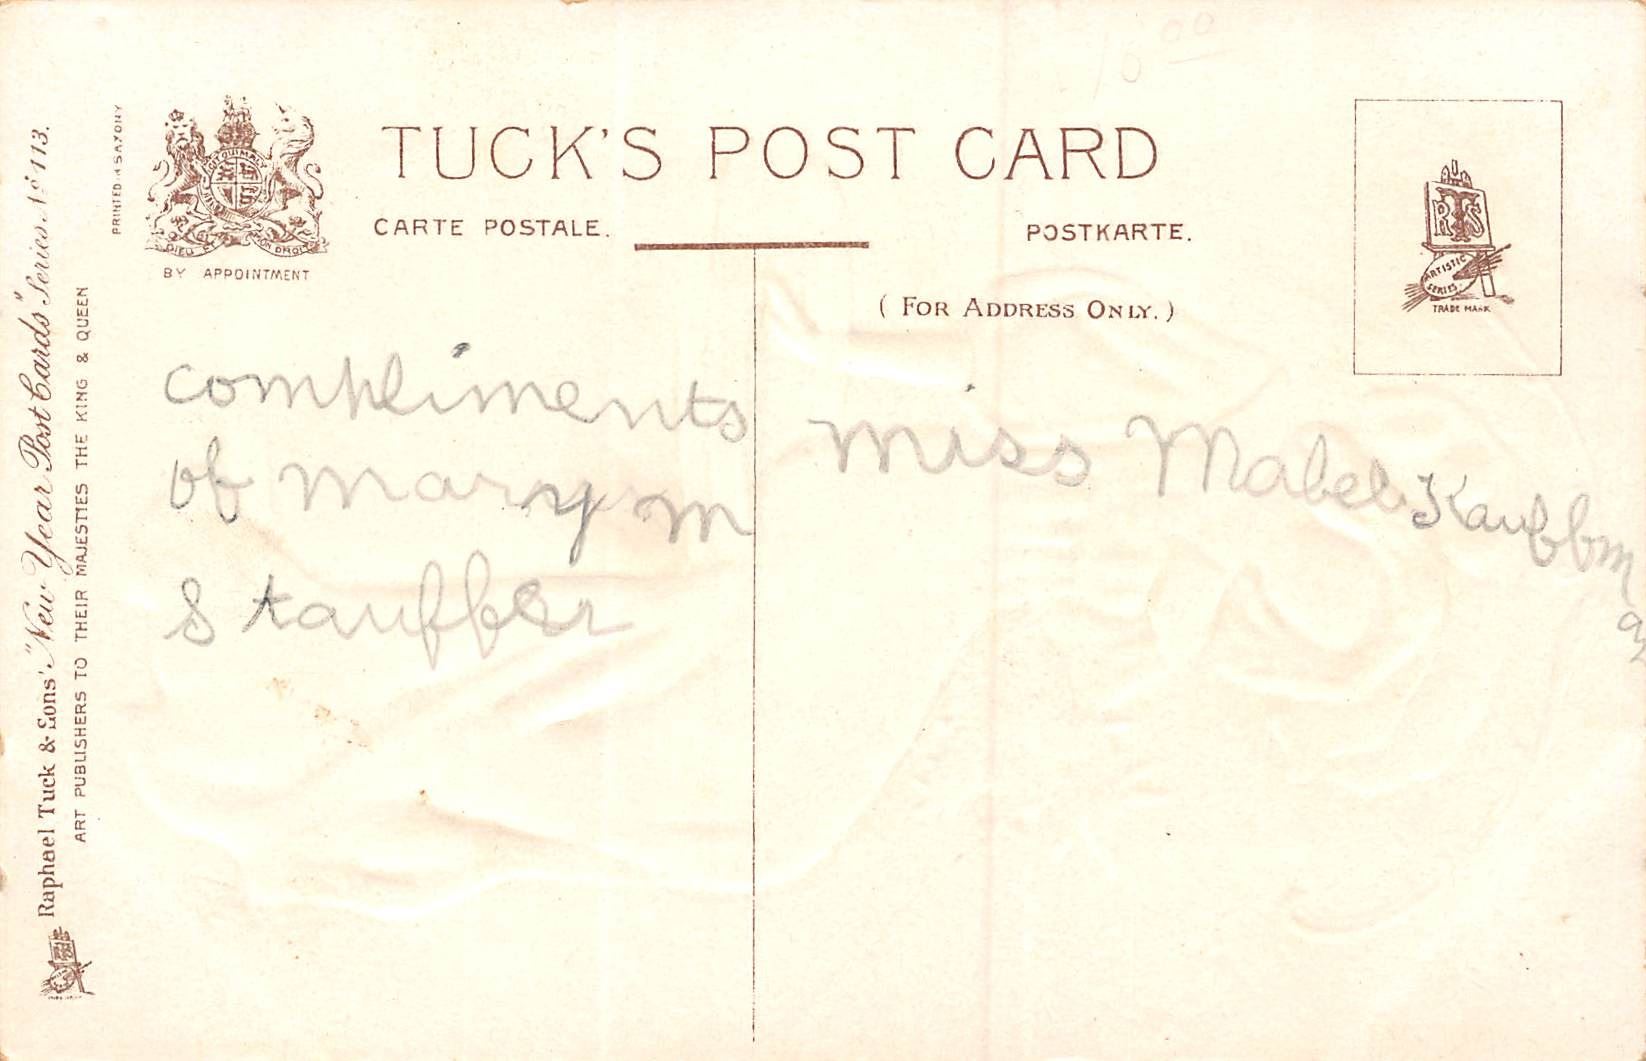 10 00
PRINTED IN SAXONY
TUCK'S POST CARD
CARTE POSTALE.
POSTKARTE.
DIEU ET MON DROIT
BY APPOINTMENT
(FOR ADDRESS ONLY.)
RTS
ARTISTIC
SERIES
TRADE MARK
compliments
of mary m
Stauffer
miss Mabel Kauffm
an
Raphael Tuck & Sons' "New Year Post Cards" Series No 113.
ART PUBLISHERS TO THEIR MAJESTIES THE KING & QUEEN